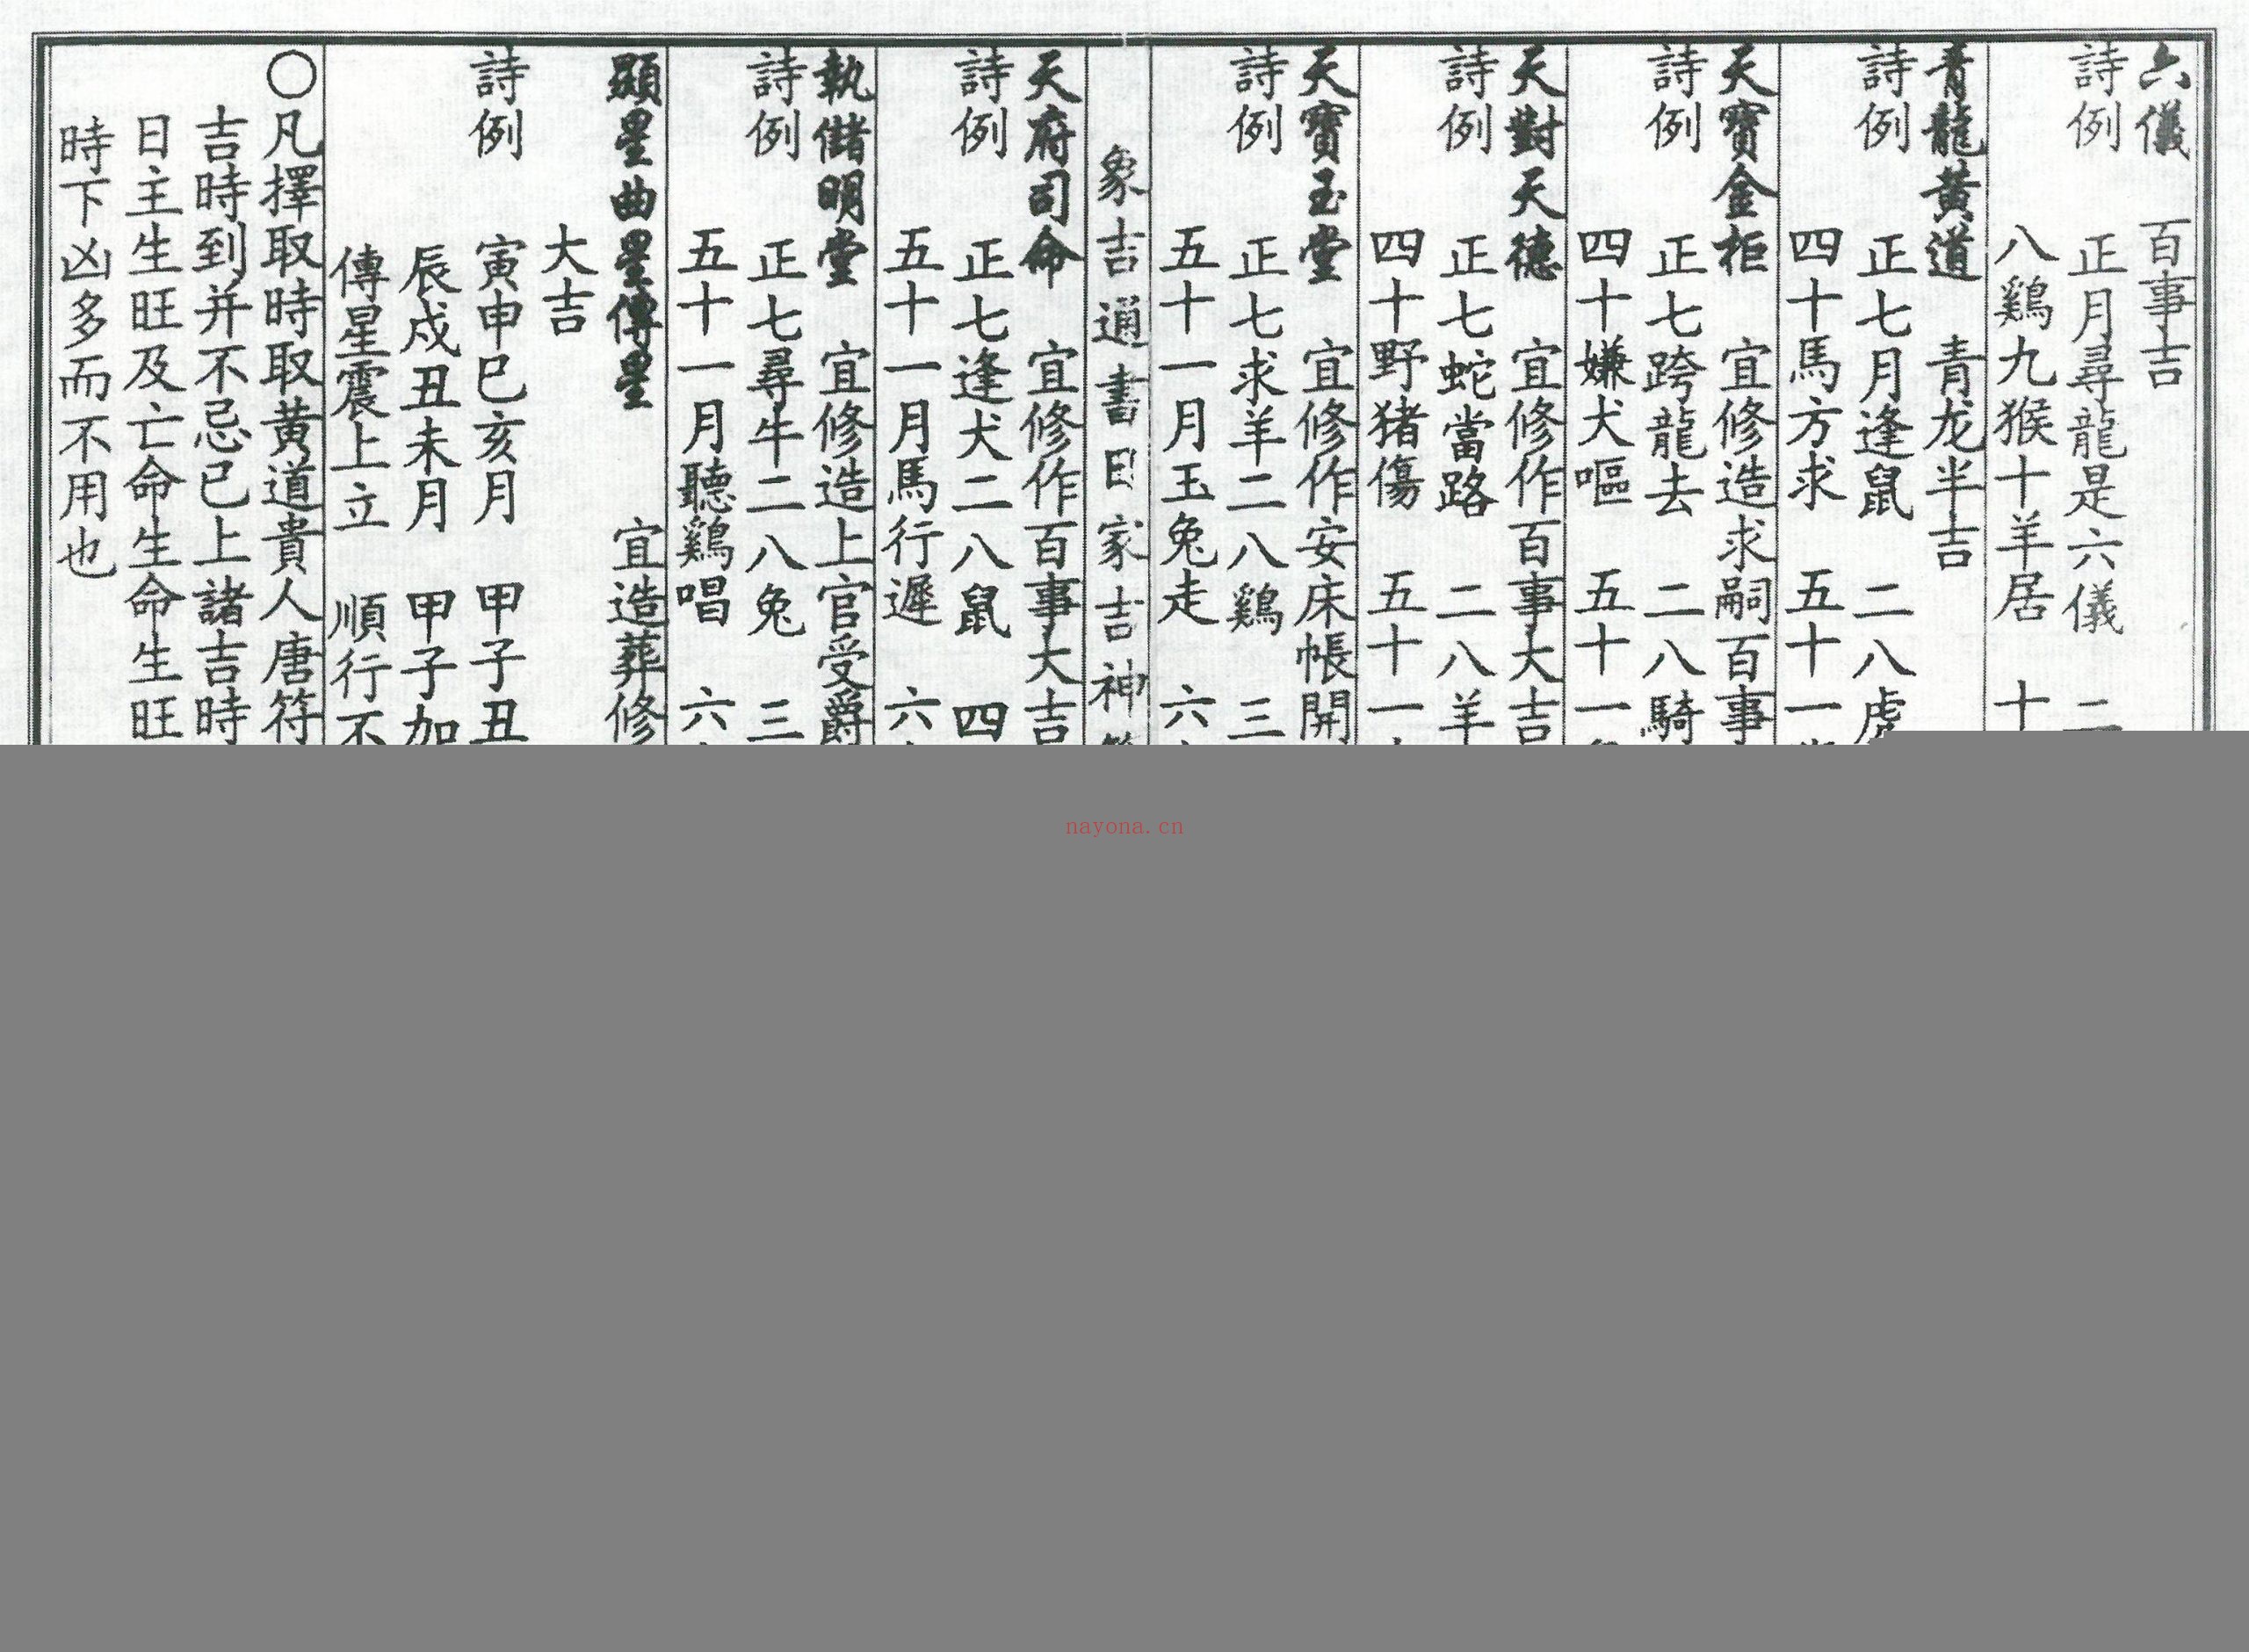 六儀　百事吉
詩例　正月尋龍是六儀　二
八鷄九猴十羊居　十
青龍黃道　青龙半吉
詩例　正七月逢鼠　二八虎
四十馬方求　五十一
天寶金柜　宜修造求嗣百事
詩例　正七跨龍去　二八騎
四十嫌犬嘔　五十一
天對天德　宜修作百事大吉
詩例　正七蛇當路　二八羊
四十野猪傷　五十一
天寶玉堂　宜修作安床帳開
詩例　正七求羊二八鷄　三
五十一月玉兔走　六
象吉通書日家吉神
天府司命　宜修作百事大吉
詩例　正七逢犬二八鼠　四
五十一月馬行遲　六
執儲明堂　宜修造上官受爵
詩例　正七尋牛二八兔　三
五十一月聽鷄唱　六
顯星曲星傳星　宜造葬修
大吉
詩例　寅申巳亥月　甲子丑
辰戌丑未月　甲子加
傳星震上立　順行不
〇凡擇取時取黃道貴人唐符
吉時到并不忌已上諸吉時
日主生旺及亡命生命生旺
時下凶多而不用也
nayona.cn